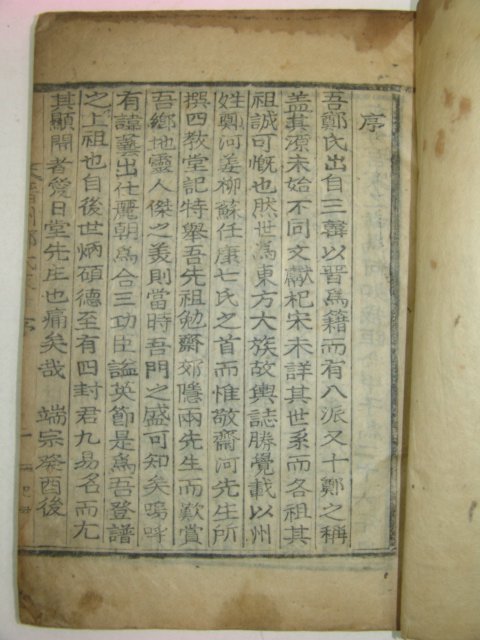 序
吾鄭氏出自三韓以晋爲籍而有八派又十鄭之稱
盖其源未始不同文獻杞宋未詳其世系而各祖其
祖誠可慨也然世爲東方大族故輿誌勝覺載以州
姓鄭河姜柳蘇任康七氏之首而惟敬齋河先生所
撰四教堂記特舉吾先祖勉齋郊隱兩先生而歎賞
吾鄉地靈人傑之義則當時吾門之盛可知矣嗚呼
有諱藝出仕麗朝爲合三功臣謚英節是爲吾登譜
之上祖也自後世炳碩德至有四封君九易名而尤
其顯聞者愛日堂先庄也痛矣哉 端宗癸酉後